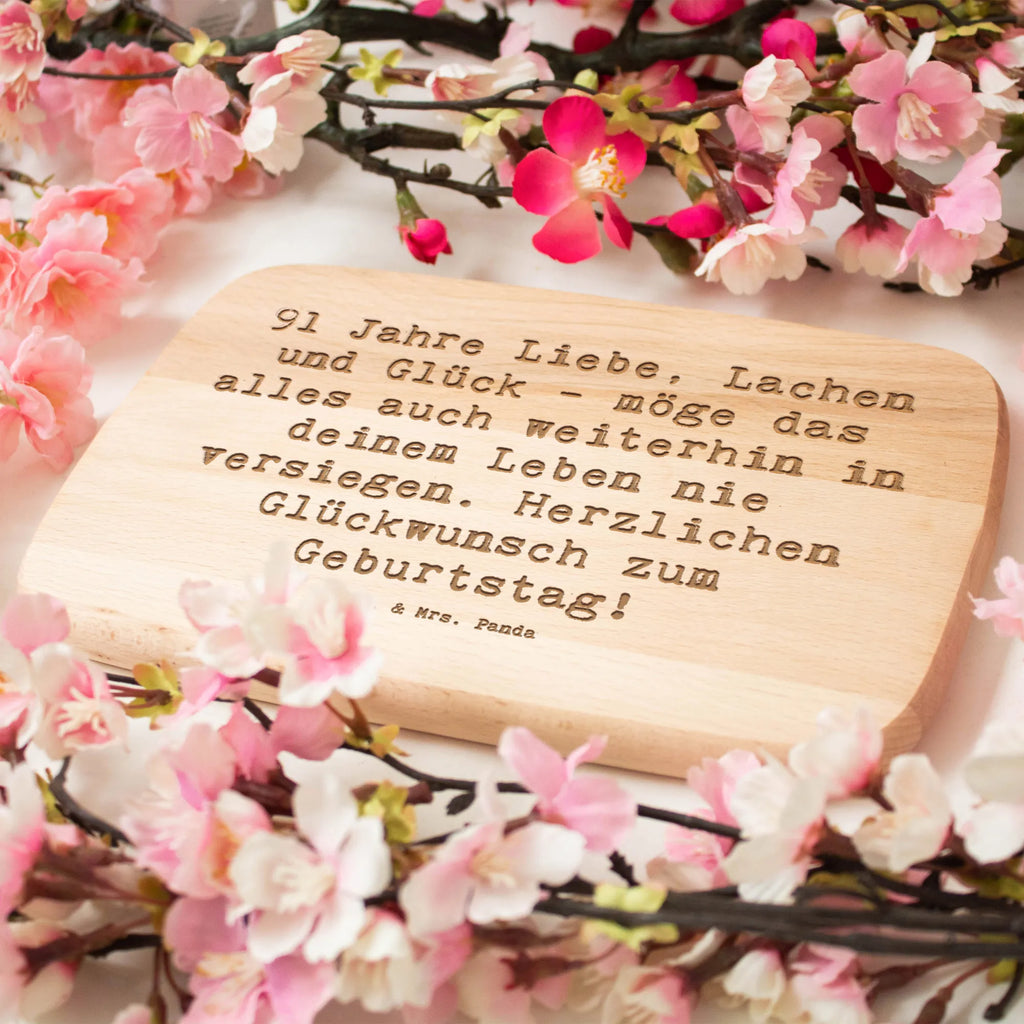 91 Jahre Liebe, Lachen
und Glück – möge das
alles auch weiterhin in
deinem Leben nie
versiegen. Herzlichen
Glückwunsch zum
Geburtstag!
& Mrs. Panda